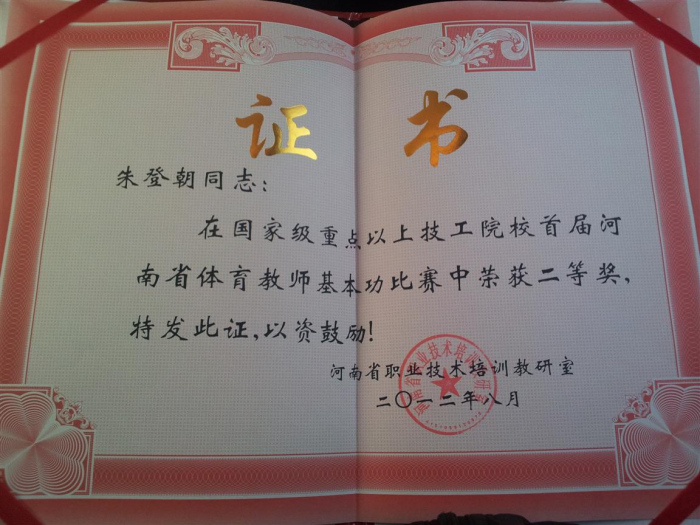 证书
朱登朝同志：
在国家级重点以上技工院校首届河
南省体育教师基本功比赛中荣获二等奖，
特发此证，以资鼓励！
河南省职业技术培训教研室
二〇一二年八月